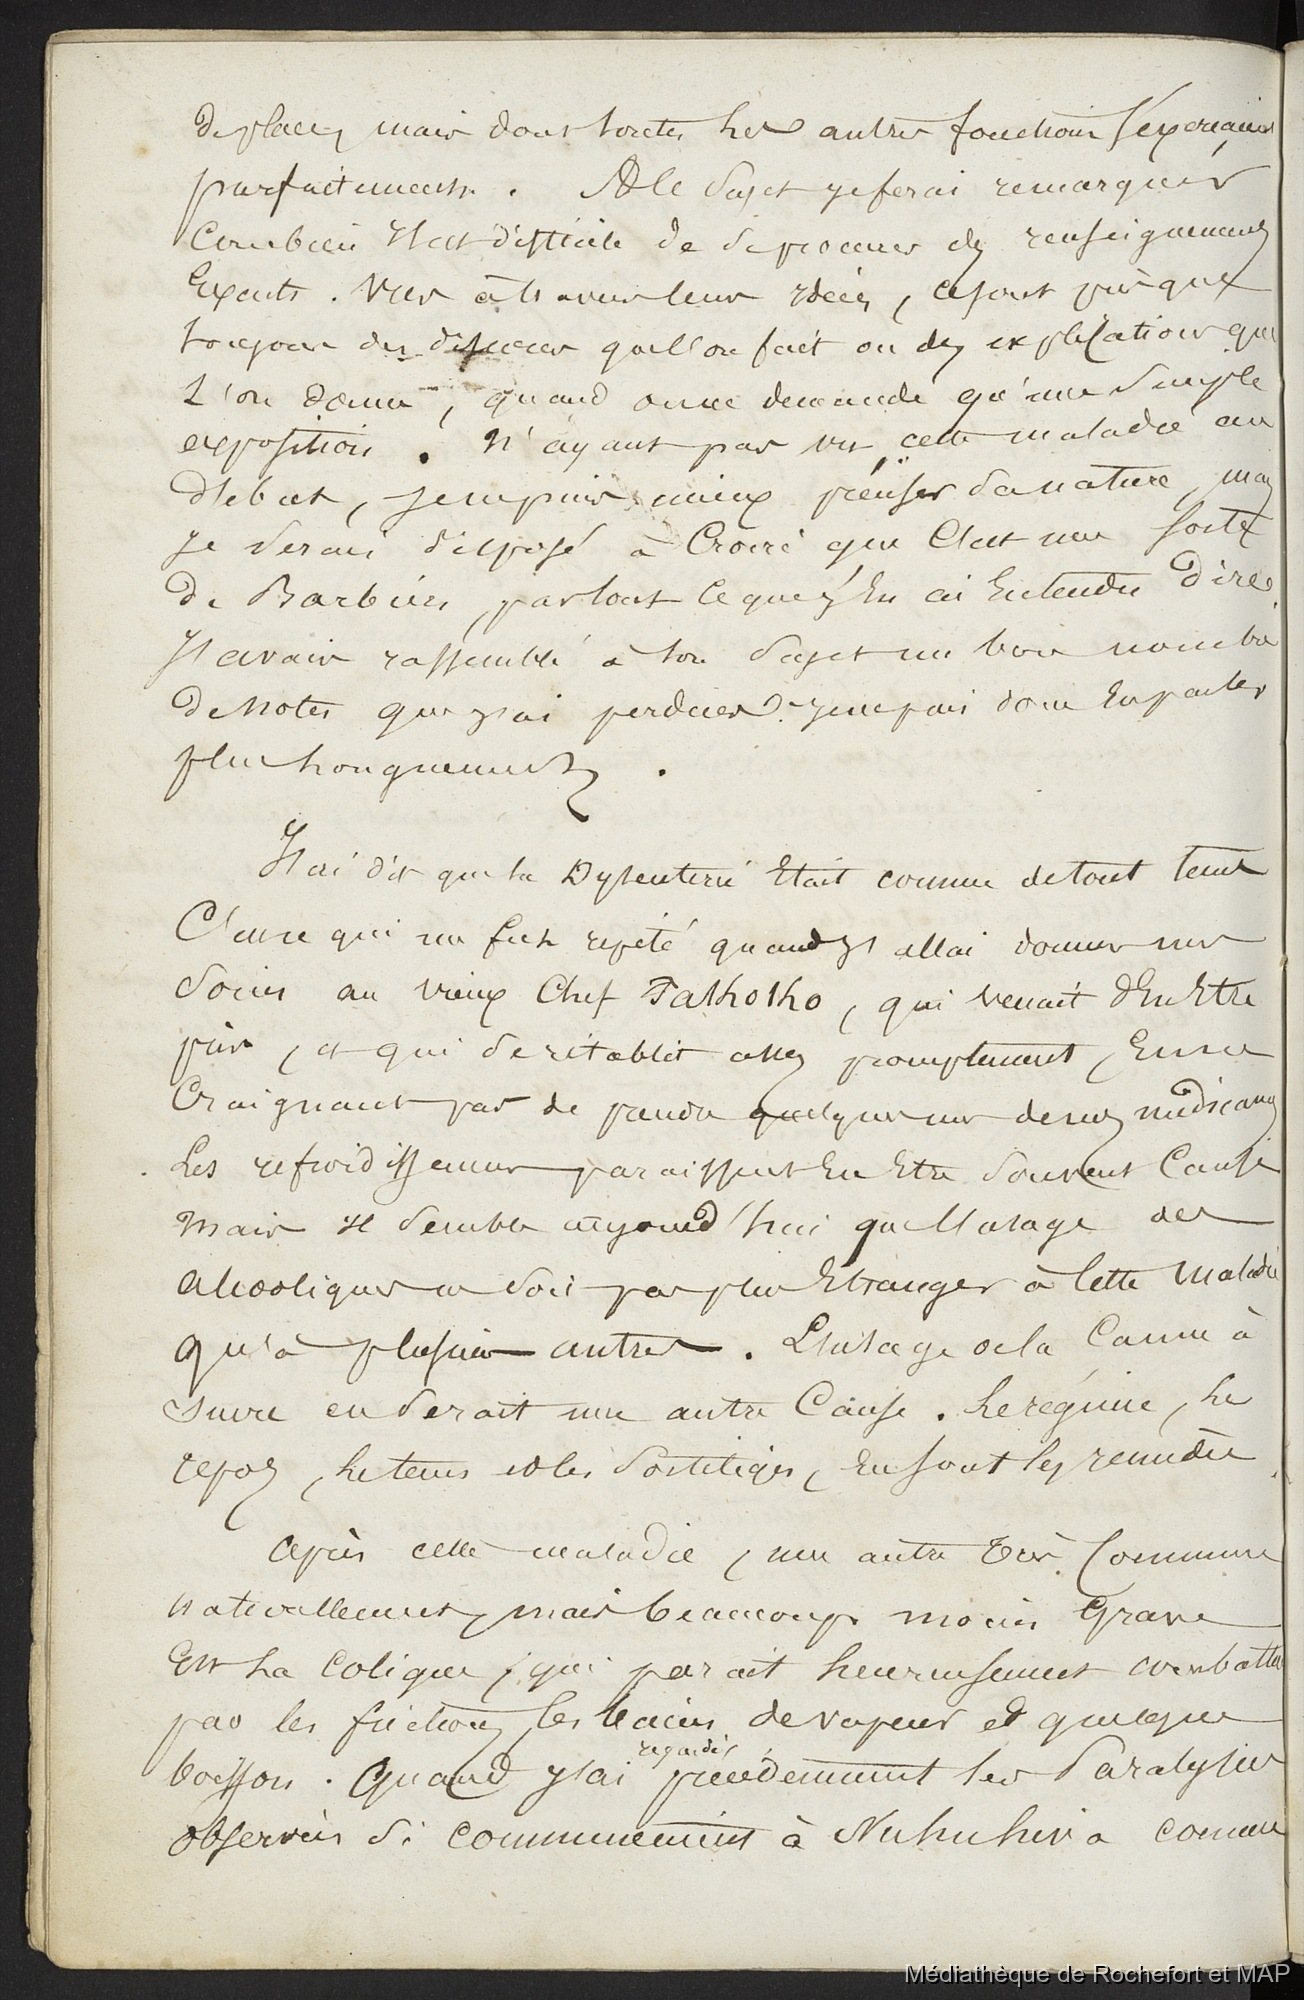 de place, mais dont toutes les autres fonctions s'exerçaient
parfaitement. A ce sujet je ferai remarquer
combien il est difficile de se procurer des renseignements
Exacts. Vus à travers leurs idées, ce sont presque
toujours des qu'l'on fait ou des explications que
l'on donne, quand on ne demande qu'une simple
exposition. N'ayant pas vu cette maladie au
début, je ne puis mieux préciser sa nature, mais
je serais disposé à croire que c'est une sorte
de Barbiers, par tout ce que j'en ai Entendu dire
J'avais rassemblé à son sujet un bon nombre
de notes que j'ai perdues. je ne puis donc En parler
plus longuement.
J'ai dit que la Dysenterie Etait connue de tout tems
C'eure qui me fut repété quand j'allai donner mes
soins au vieux Chef Pakhokho, qui venait d'En Etre
pris, et qui se rétablit assez promptement, En ne
Craignant pas de prendre quelques uns de mes médicamens
Les refroidissemens paraissent En Etre souvent Cause
Mais il semble aujourd'hui que l'usage des
alcooliques ne soit pas plus Etranger à Cette Maladie
qu'à plusieurs autres. L'usage de la Canne à
sucre en serait une autre Cause. Le régime, le
repos, le tems et les sortilèges, En sont les remèdes
Après cette maladie, une autre très Commune
naturellement, mais beaucoup moins Grave
Est La colique, qui parait heureusement combattue
par les frictions, les bains de vapeurs et quelques
boisson. Quand j'ai regardé précédemment les Paralysies
observées si communément à Nukuhiva comme